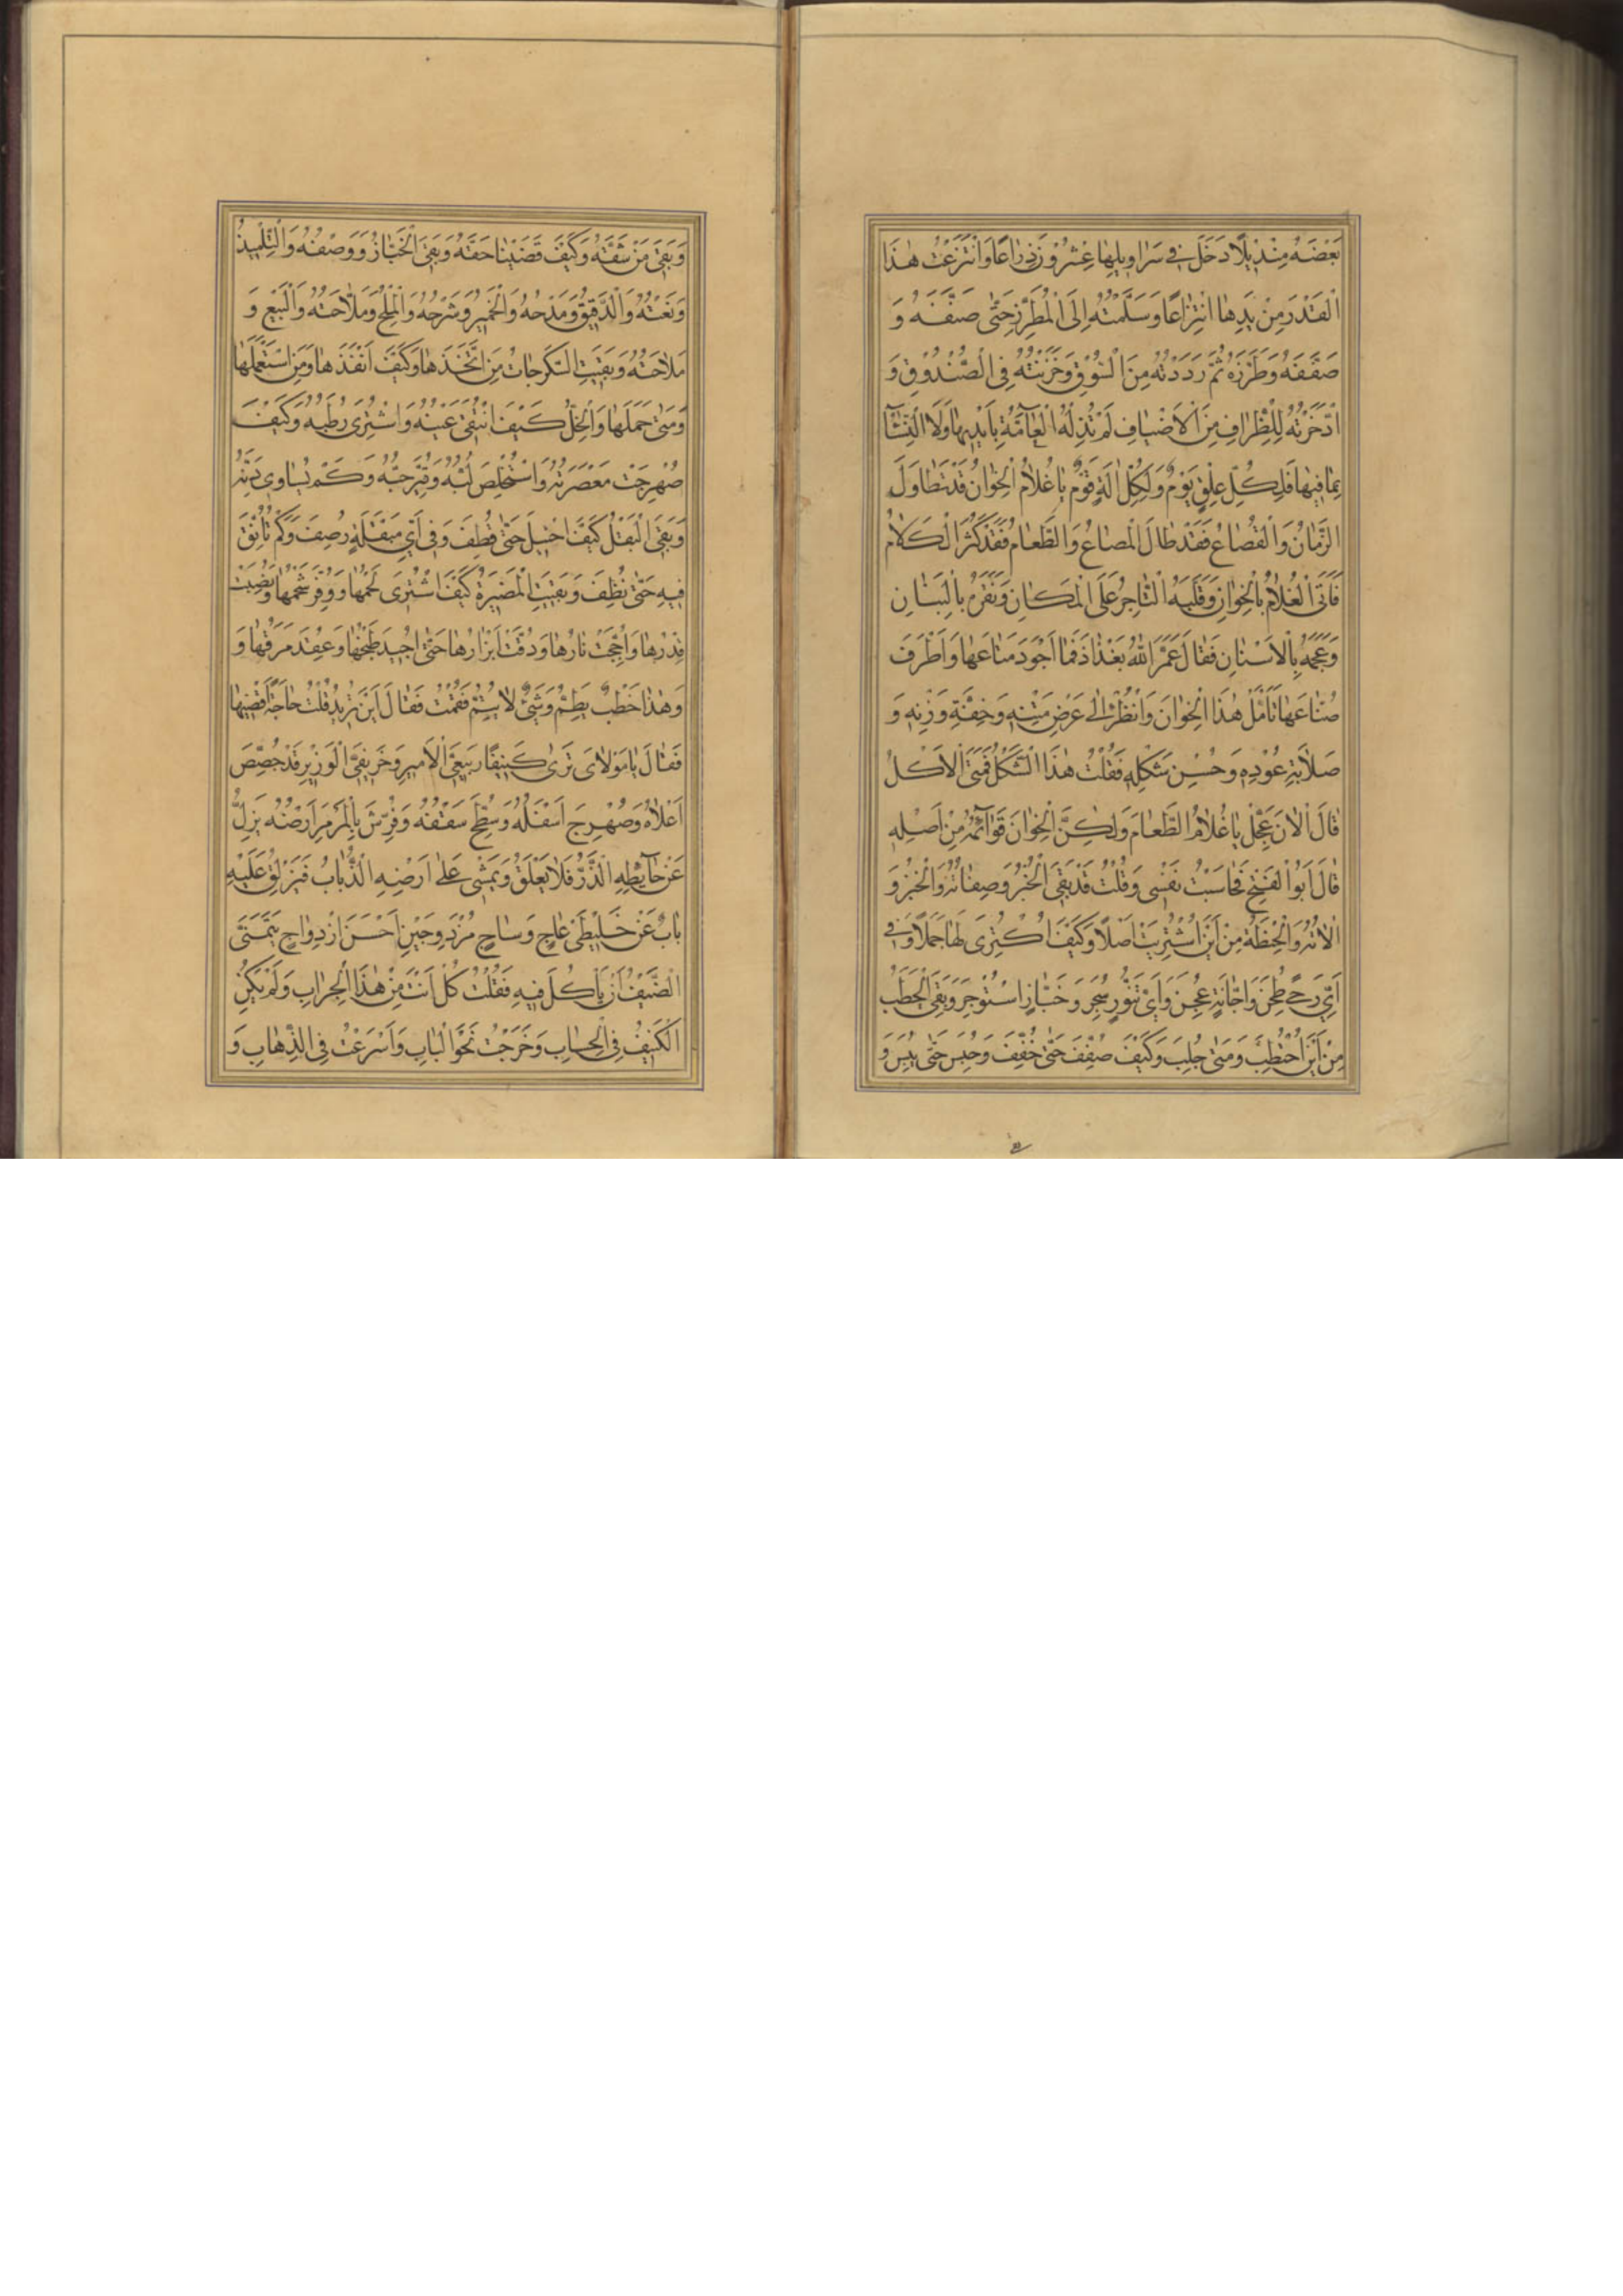 بَعْضَهُ مِنْدِيلًا دَخَلَ فِي سَرَاوِيلِهَا عِشْرُوْنَ ذِرَاعًا وَانْتَزَعْتُ هٰذَا
الْقَدْرَ مِنْ يَدِهَا انْتِزَاعًا وَسَلَّمْتُهُ اِلَى الْمُطَرِّزِ حَتّٰى صَنَّفَهُ وَ
صَفَّفَهُ وَطَرَّزَهُ ثُمَّ رَدَدْتُهُ مِنَ السُّوْقِ وَخَزَنْتُهُ فِي الصُّنْدُوْقِ وَ
ادَّخَرْتُهُ لِلْظِرَافِ مِنَ الْاَضْيَافِ لَمْ تُذِلَّهُ الْعَآمَّةُ بِاَيْدِيهَا وَلَا النِّسَآ
بِمَا فِيهَا فَلِكُلِّ عِلْقٍ يَوْمٌ وَلِكُلِّ اٰلَةٍ قَوْمٌ يَا غُلَامُ الْخِوَانُ قَدْ تَطَاوَلَ
الزَّمَانُ وَالْقِصَاعُ فَقَدْ طَالَ الْمِصَاعُ وَالطَّعَامُ فَقَدْ كَثُرَ الْكَلَامُ
فَاَتَى الْغُلَامُ بِالْخِوَانِ وَقَلَبَهُ التَّاجِرُ عَلَى الْمَكَانِ وَنَقَرَهُ بِالْبَنَانِ
وَعَجَمَهُ بِالْاَسْنَانِ فَقَالَ عَمَّرَ اللّٰهُ بَغْدَاذَ فَمَا اَجْوَدَ مَتَاعَهَا وَاَظْرَفَ
صُنَّاعَهَا تَاَمَّلْ هٰذَا الْخِوَانَ وَانْظُرْ اِلٰى عَرْضِ مَتْنِهِ وَخِفَّةِ وَزْنِهِ وَ
صَلَابَةِ عُوْدِهِ وَحُسْنِ شَكْلِهِ فَقُلْتُ هٰذَا الشَّكْلُ فَمَتَى الْاَكْلُ
قَالَ الْاٰنَ عَجِّلْ يَا غُلَامُ الطَّعَامَ وَلٰكِنَّ الْخِوَانَ قَوَآئِمُهُ مِنْ اَصْلِهِ
قَالَ اَبُوالْفَتْحِ فَجَاشَتْ نَفْسِي وَقُلْتُ قَدْ بَقِيَ الْخُبْزُ وَصِفَاتُهُ وَالْخَبْزُ وَ
اٰلَاتُهُ وَالْحِنْطَةُ مِنْ اَيْنَ اشْتُرِيَتْ اَصْلًا وَكَيْفَ اكْتُرِيَ لَهَا حَمَلًا وَفِي
اَيِّ رَحًى طُحِنَ وَاِجَّانَةٍ عُجِنَ وَاَيَّ تَنُّوْرٍ سُجِرَ وَخَبَّازٍ اسْتُوْجِرَ وَبَقِيَ الْحَطَبُ
مِنْ اَيْنَ احْتُطِبَ وَمَتٰى جُلِبَ وَكَيْفَ صُفِّفَ حَتّٰى جُفِّفَ وَحُبِسَ حَتّٰى يَبِسَ وَ
وَبَقِيَ مَنْ شَقَّهُ وَكَيْفَ قَضَيْنَا حَقَّهُ وَبَقِيَ الْخَبَّازُ وَوَصْفُهُ وَالتِّلْمِيذُ
وَنَعْتُهُ وَالدَّقِيقُ وَمَدْحُهُ وَالْخَمِيرُ وَشَرْحُهُ وَالْمِلْحُ وَمَلَاحَتُهُ وَالْبَيْعُ وَ
مَلَاحَتُهُ وَبَقِيَتِ السُّكَرَّجَاتُ مَنِ اتَّخَذَهَا وَكَيْفَ اَنْفَذَهَا وَمَنِ اسْتَعْمَلَهَا
وَمَتٰى حَمَلَهَا وَالْخَلُّ كَيْفَ انْتُقِيَ عِنَبُهُ وَاشْتُرِيَ رُطَبُهُ وَكَيْفَ
صُهْرِجَتْ مَعْصَرَتُهُ وَاسْتُخْلِصَ لُبُّهُ وَقُيِّرَ حُبُّهُ وَكَمْ يُسَاوِي دَنُّهُ
وَبَقِيَ الْبَقْلُ كَيْفَ احْتِيلَ حَتّٰى قُطِفَ وَفِي اَيِّ مَبْقَلَةٍ رُصِفَ وَكَمْ تُاُنِّقَ
فِيهِ حَتّٰى نُظِّفَ وَبَقِيَتِ الْمَضِيرَةُ كَيْفَ اشْتُرِيَ لَحْمُهَا وَوُفِّرَ شَحْمُهَا وَنُصِبَتْ
قِدْرُهَا وَاُجِّجَتْ نَارُهَا وَدُقَّتْ اَبْزَارُهَا حَتّٰى اُجِيدَ طَبْخُهَا وَعُقِدَ مَرَقُهَا وَ
وَهٰذَا خَطْبٌ يَطِمُّ وَشَيْءٌ لَا يَتِمُّ فَقُمْتُ فَقَالَ اَيْنَ تُرِيدُ قُلْتُ حَاجَةً اَقْضِيهَا
فَقَالَ يَا مَوْلَايَ تَرٰى كَنِيفًا رَبِيعِيَّ الْاَمِيرِ وَخَرِيفِيَّ الْوَزِيرِ قَدْ جُصِّصَ
اَعْلَاهُ وَصُهْرِجَ اَسْفَلُهُ وَسُطِّحَ سَقْفُهُ وَفُرِّشَ بِالْمَرْمَرِ اَرْضُهُ يَزِلُّ
عَنْ حَآئِطِهِ الذَّرُّ فَلَا يَعْلَقُ وَيَمْشِي عَلٰى اَرْضِهِ الذُّبَابُ فَيَزْلَقُ عَلَيْهِ
بَابٌ عَنْ خَلِيطَيْ عَاجٍ وَسَاجٍ مُزْدَوِجَيْنِ اَحْسَنَ ازْدِوَاجٍ يَتَمَنَّى
الضَّيْفُ اَنْ يَاْكُلَ فِيهِ فَقُلْتُ كُلْ اَنْتَ مِنْ هٰذَا الْجِرَابِ وَلَمْ يَكُنِ
الْكَنِيفُ فِي الْحِسَابِ وَخَرَجْتُ نَحْوَ الْبَابِ وَاَسْرَعْتُ فِي الذَّهَابِ وَ